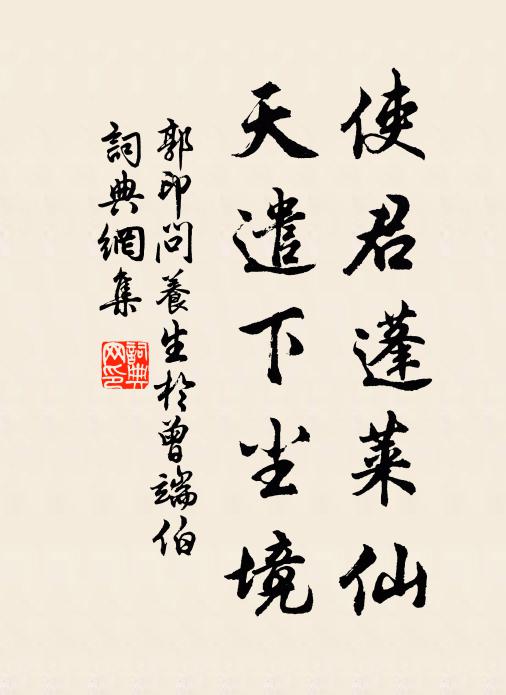 使君蓬莱仙
天遣下尘境
郭印問養生於曾端伯
詞典網集
詞典
网印